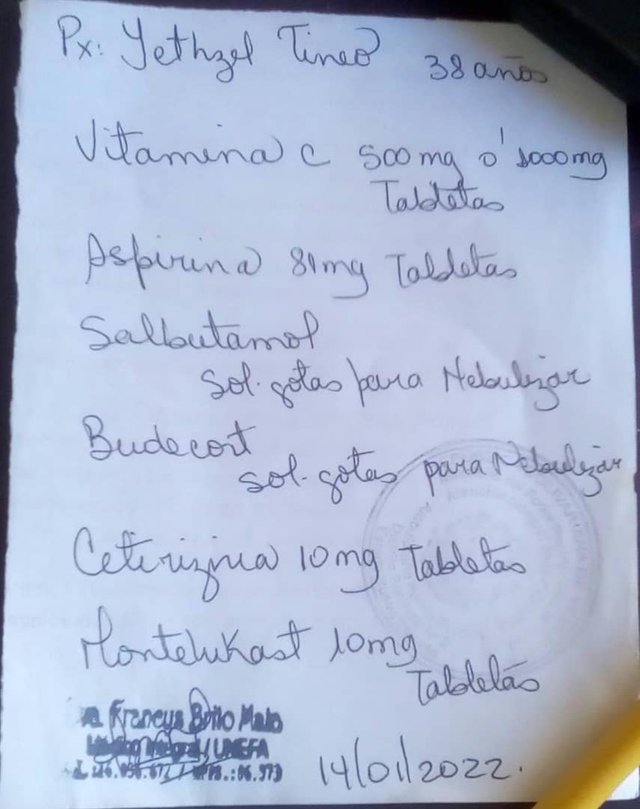 Px: Yethzel Tineo 38 años
Vitamina C 500mg ó 1000mg
Tabletas
Aspirina 81mg Tabletas
Salbutamol
Sol. gotas para Nebulizar
Budecort
Sol. gotas para Nebulizar
Cetirizina 10mg Tabletas
Montelukast 10mg
Tabletas
Francys Brito
/UNEFA
14/01/2022.